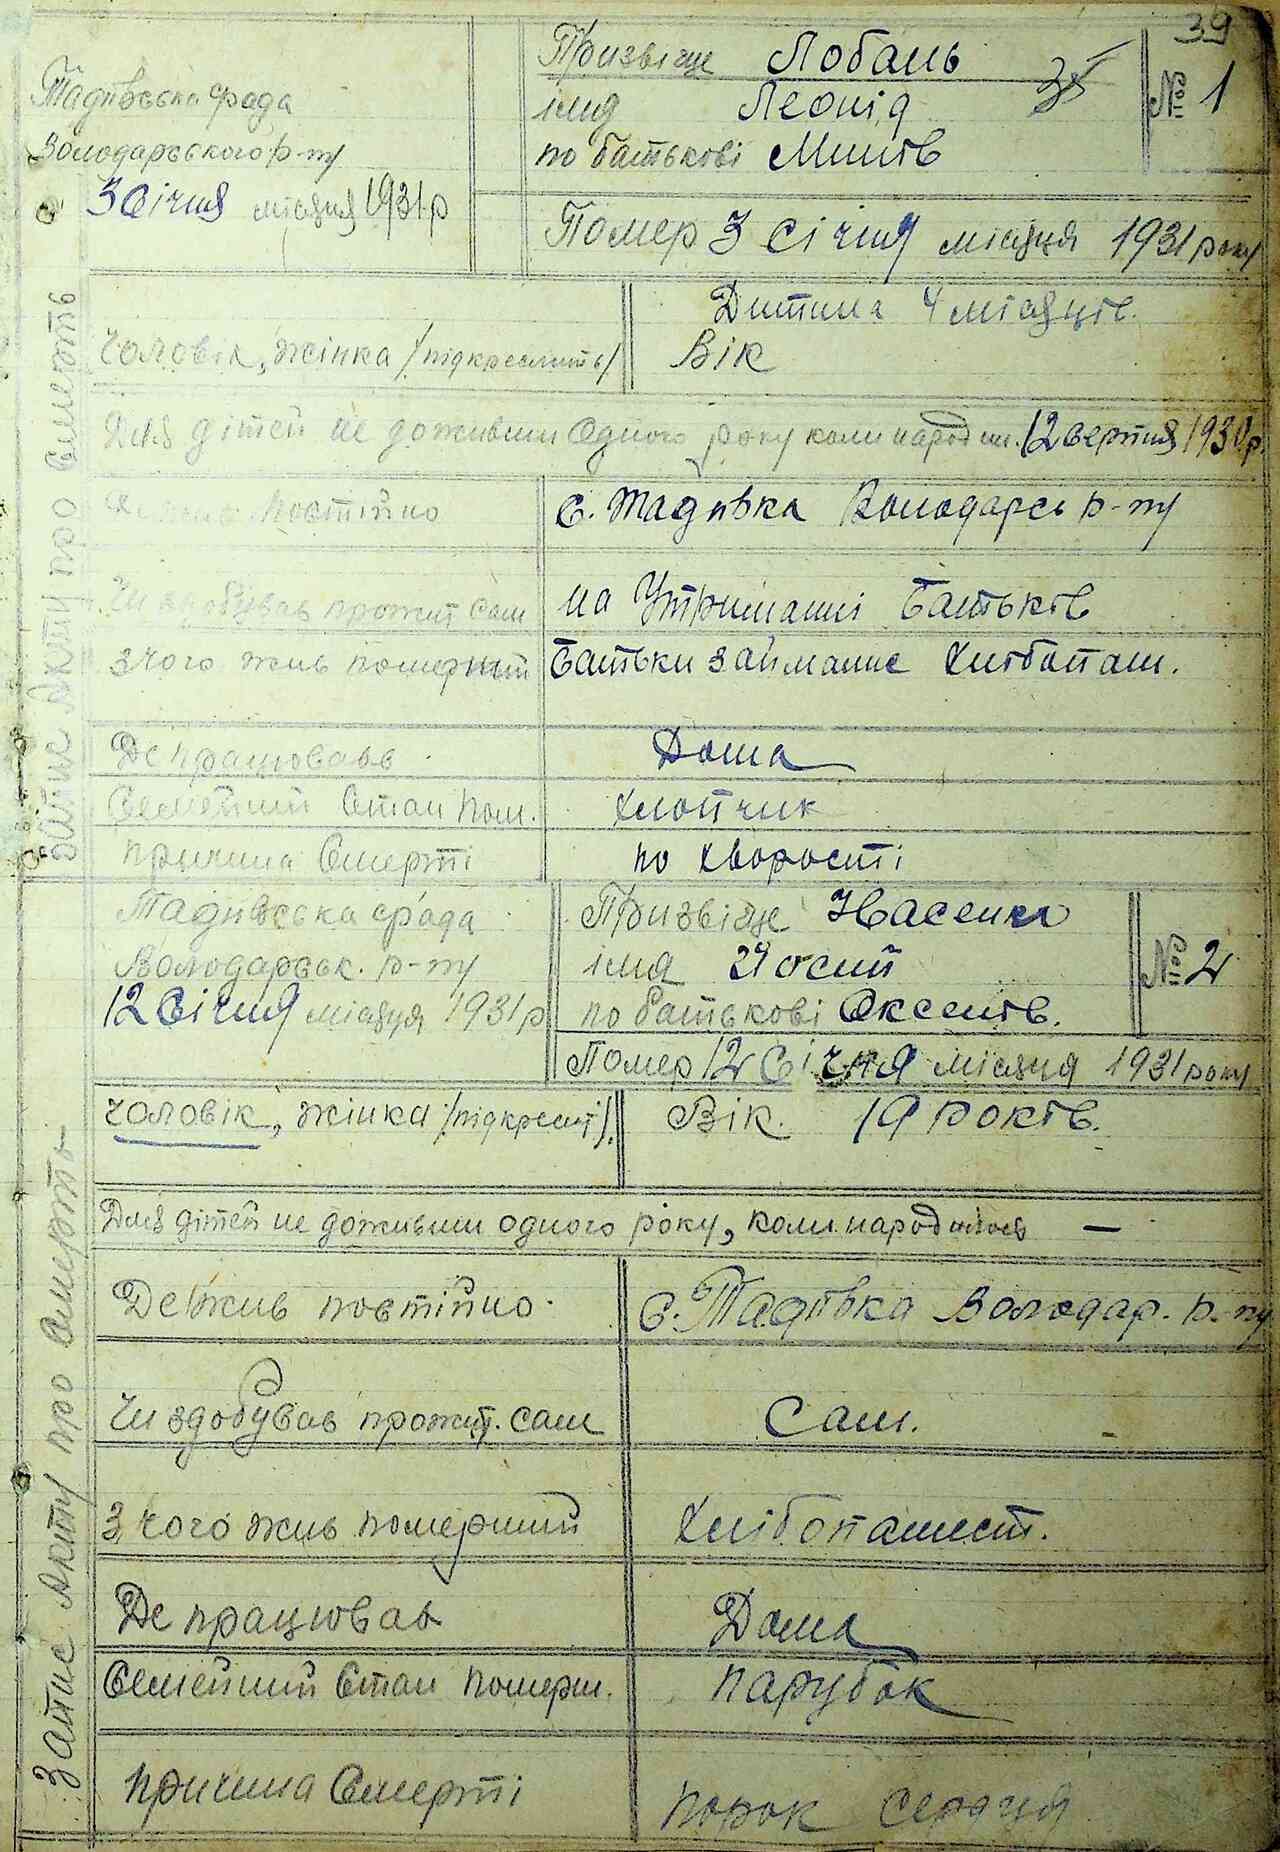 39
Тадіївська с/рада
Володарського р-ну
3 січня місяця 1931 р
Призвіще Лобань
імя Леонід
по батькові
№ 1
Помер 3 січня місяця 1931 року
Запис Акту про смерть
Чоловік, жінка /підкреслить/
Дитина 4 місяців.
Вік
Для дітей не доживши одного року коли народ 12 серпня 1930 р.
постійно
с. Тадіївка Володарсь р-ну
Чи здобував прожит сам
на Утриманні Батьків
З чого жив померший
Батьки займание хлібопаш.
Де працював
Дома
Семейний Стан пом.
хлопчик
причина Смерті
по хворості
Тадіївська с/рада
Володарськ. р-ну
12 Січня місяця 1931 р
Призвіще Ивасенко
імя Йосип
по батькові Оксентів.
№ 2
Помер 12 Січня місяця 1931 року
Запис Акту про смерть
чоловік, жінка /підкресл/.
Вік. 19 років.
Для дітей не доживши одного року, коли народилося —
Де жив постійно.
с. Тадіївка Володар. р-ну
Чи здобував прожит. сам
Сам.
З чого жив померший
Хлібопашест.
Де працював
Дома
Семейний Стан померш.
парубок
причина Смерті
порок сердця